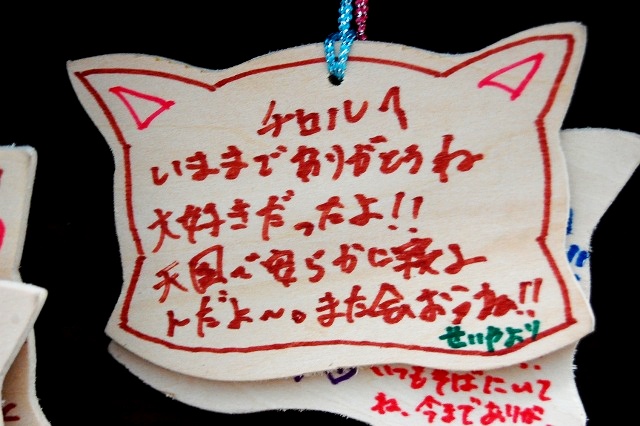 チロルへ
いままでありがとうね
大好きだったよ!!
天国で安らかに寝よ
んだよ〜。また会おうね!!
せいやより
いつもそばにいて
ね、今までありが